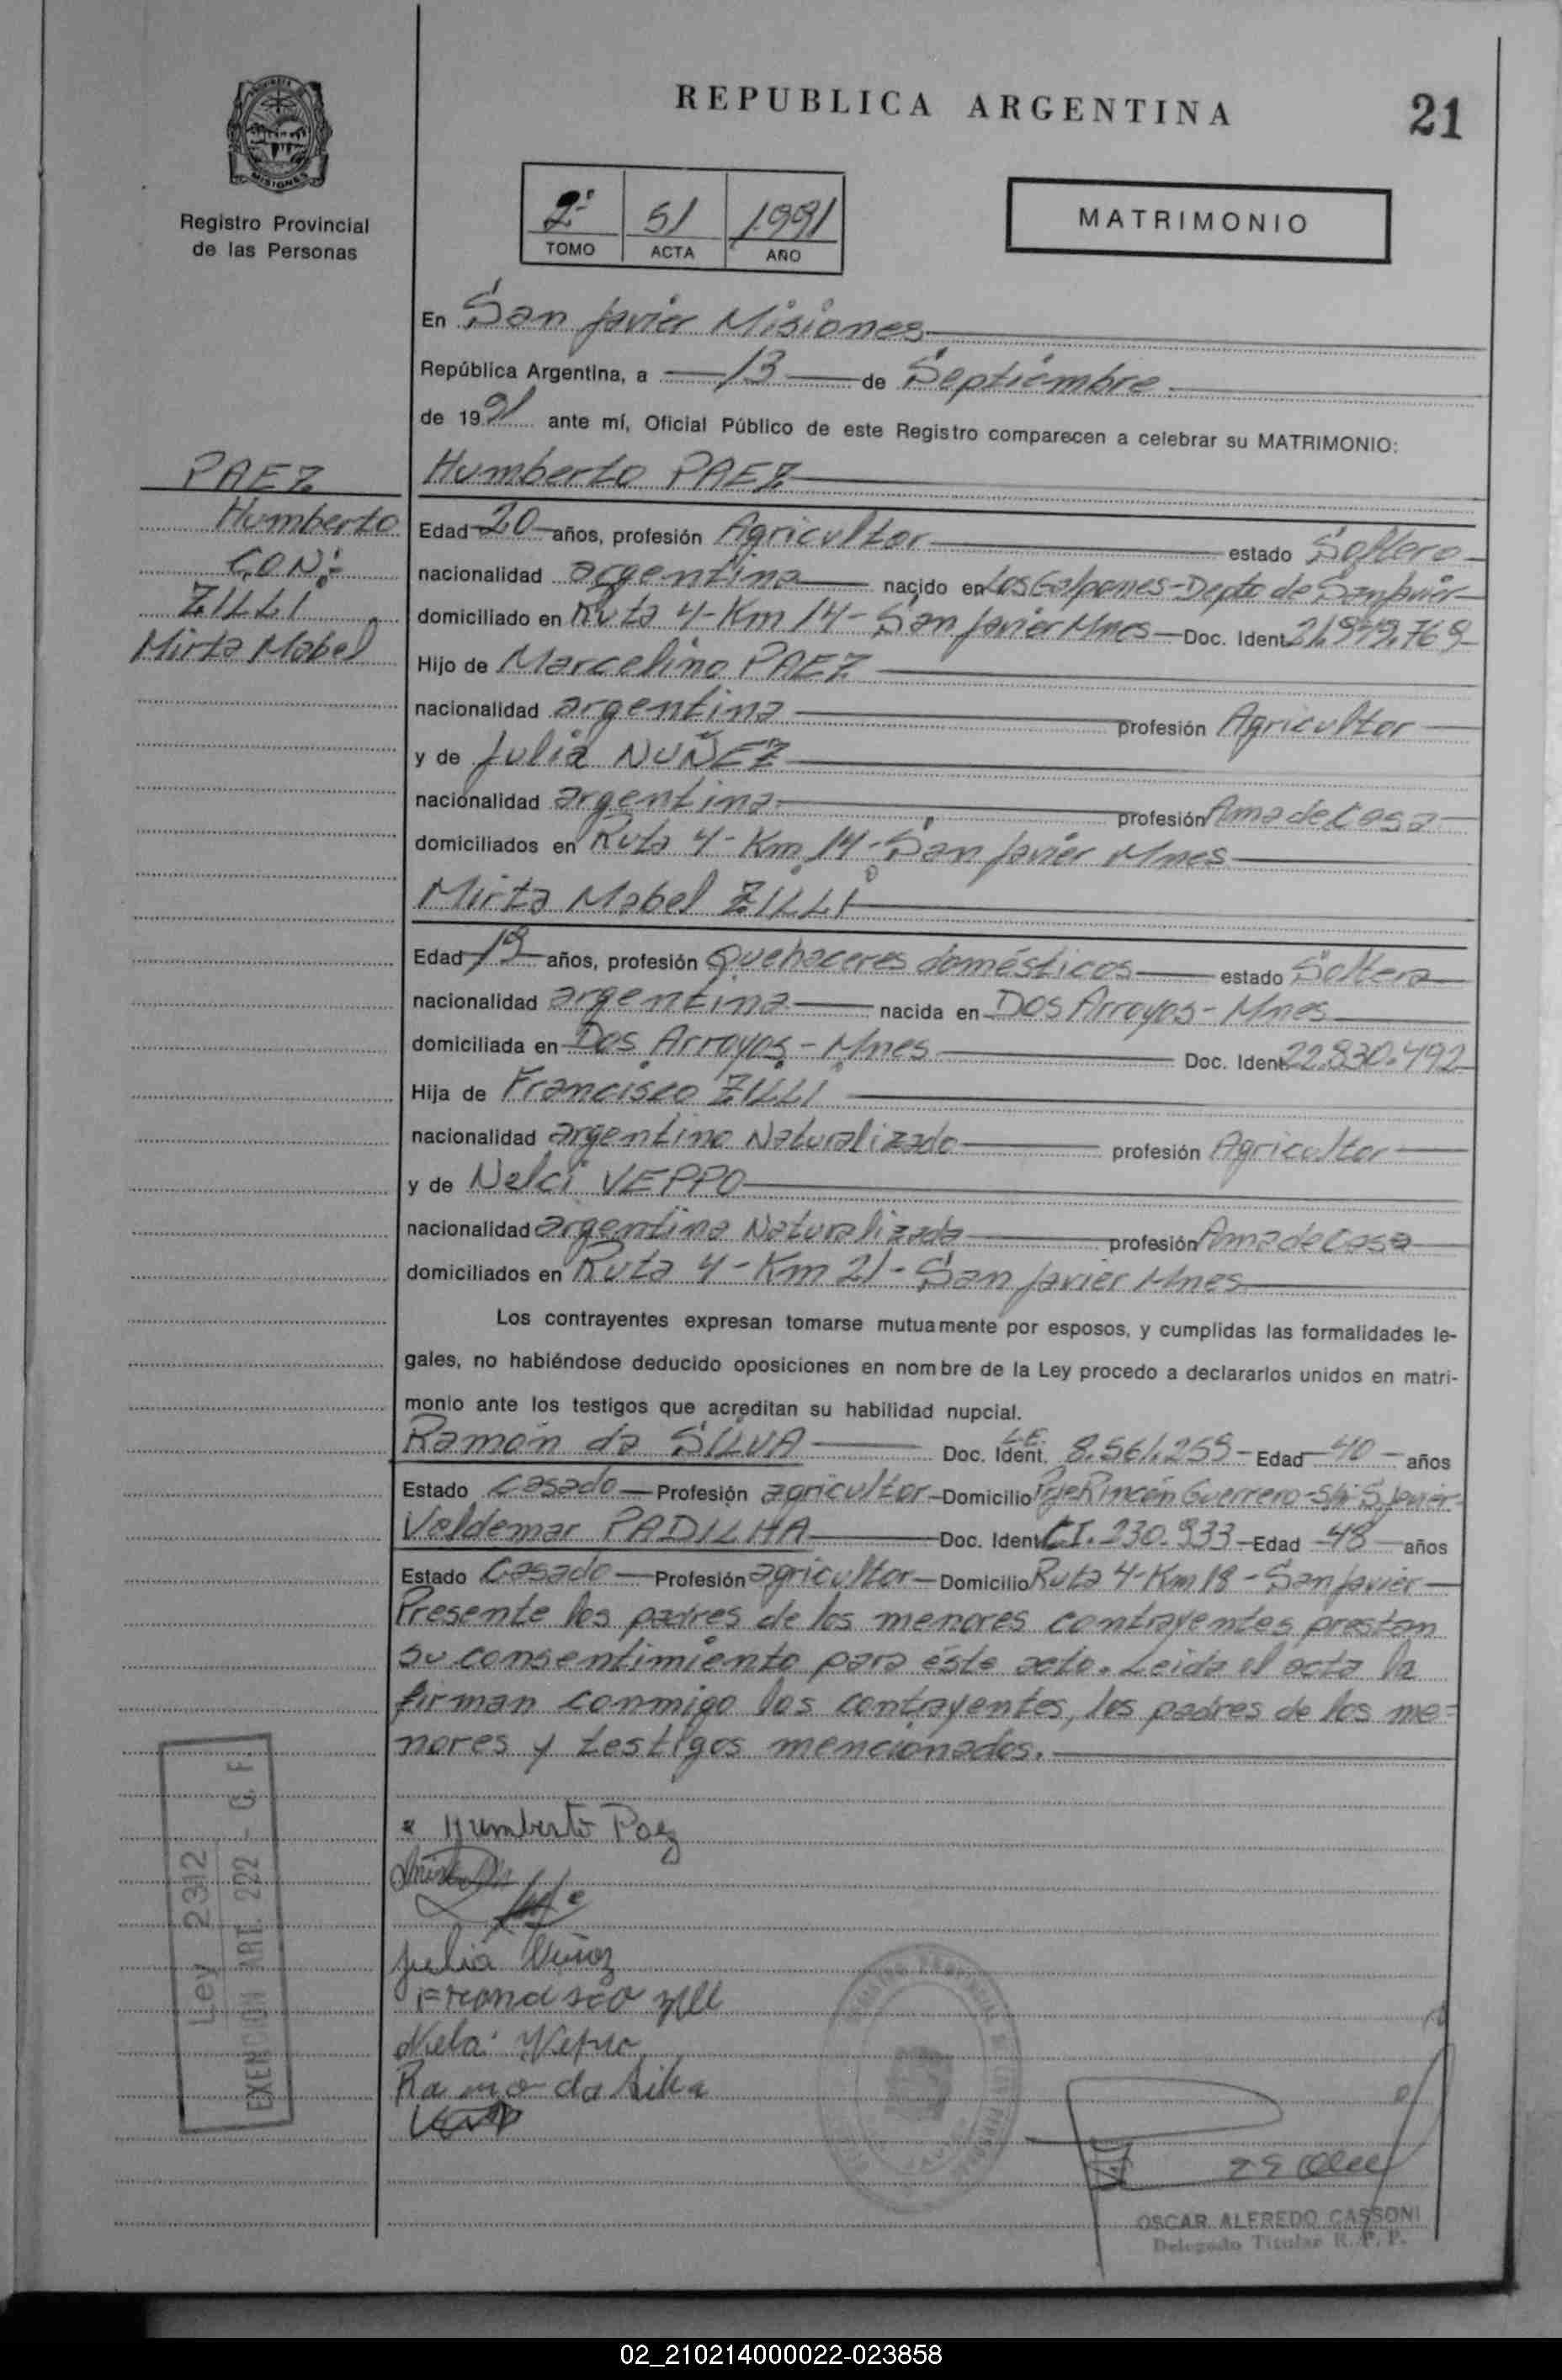 REPUBLICA ARGENTINA
21
MISIONES
Registro Provincial
de las Personas
2º 51 1991
TOMO ACTA AÑO
MATRIMONIO
En San Javier Misiones
República Argentina, a 13 de Septiembre
de 1991 ante mí, Oficial Público de este Registro comparecen a celebrar su MATRIMONIO:
PAEZ
Humberto
CON:
ZILLI
Mirta Mabel
Humberto PAEZ
Edad 20 años, profesión Agricultor estado Soltero
nacionalidad argentina nacido en Los Galpones-Depto de San Javier
domiciliado en Ruta 4-Km 14-San Javier Mnes Doc. Ident.
Hijo de Marcelino PAEZ
nacionalidad argentina profesión Agricultor
y de Julia NUÑEZ
nacionalidad argentina profesión Ama de casa
domiciliados en Ruta 4-Km 14-San Javier Mnes
Mirta Mabel ZILLI
Edad 19 años, profesión Quehaceres domésticos estado Soltera
nacionalidad argentina nacida en Dos Arroyos-Mnes
domiciliada en Dos Arroyos-Mnes Doc. Ident 22.830.492
Hija de Francisco ZILLI
nacionalidad argentino Naturalizado profesión Agricultor
y de Nelci VEPPO
nacionalidad argentina Naturalizada profesión Ama de casa
domiciliados en Ruta 4-Km 21-San Javier Mnes
Los contrayentes expresan tomarse mutuamente por esposos, y cumplidas las formalidades le-
gales, no habiéndose deducido oposiciones en nombre de la Ley procedo a declararlos unidos en matri-
monio ante los testigos que acreditan su habilidad nupcial.
Ramón da SILVA Doc. Ident. L.E. 8.561.259 Edad 40 años
Estado casado Profesión agricultor Domicilio Pje Rincón Guerrero-S/n-S.Javier
Valdemar PADILHA Doc. Ident C.I. 230.933 Edad 48 años
Estado Casado Profesión agricultor Domicilio Ruta 4-Km 18-San Javier
Presente los padres de los menores contrayentes prestan
su consentimiento para éste acto. Leida el acta la
firman conmigo los contrayentes, los padres de los me=
nores y testigos mencionados.
Humberto Paez
Julia Nuñez
Francisco Zilli
Nelci Veppo
Ramo da Silva
Ley 2312
EXENCION ART. 222 - C. F.
OSCAR ALFREDO CASSONI
Delegado Titular R. P. P.
02_210214000022-023858